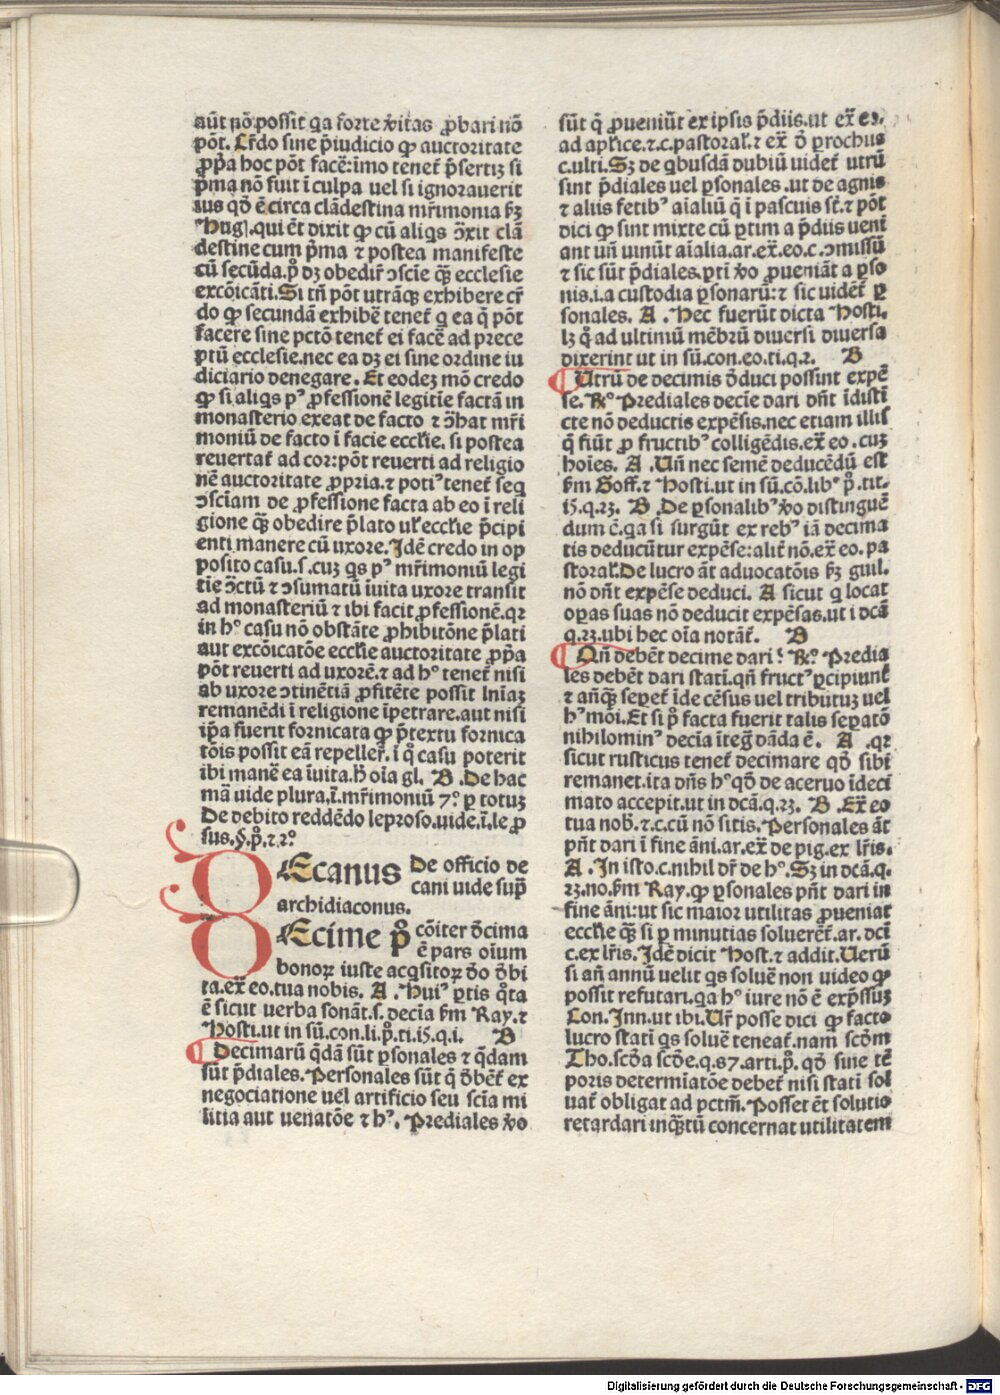 aūt nō possit qa forte v̄itas ꝓbari nō
pōt. Cr̄do sine p̄iudicio ꝙ auctoritate
ꝓp̄a hoc pōt facē: imo tenet̄ p̄sertiꝫ si
p̄ma nō fuit ī culpa uel si ignorauerit
ius qd̄ ē circa clādestina mr̄imonia ẜꝫ
Hug. qui ēt dixit ꝙ cū aliqs ↄ̄xit clā
destine cum p̄ma ⁊ postea manifeste
cū secūda. p̊ dꝫ obedir̄ ↄscīe q̄ꝫ ecclesie
excōicāti. Si tn̄ pōt utrāqꝫ exhibere cr̄
do ꝙ secundā exhibē tenet̄ q ea q̄ pōt
facere sine pctō tenet̄ ei facē ad prece
ptū ecclesie. nec ea dꝫ ei sine ordine iu
diciario denegare. Et eodeꝫ mō credo
ꝙ si aliqs pꝰ ꝓfessionē legitīe factā in
monasterio exeat de facto ⁊ ↄ̄hat mr̄i
moniū de facto ī facie eccl̄ie. si postea
reuertat̄ ad cor: pōt reuerti ad religio
nē auctoritate ꝓpria. ⁊ potiꝰ tenet̄ seq
ↄsciam de ꝓfessione facta ab eo ī reli
gione q̄ꝫ obedire p̄lato ul̄ eccl̄ie p̄cipi
enti manere cū uxore. Idē credo in op
posito casu. s. cuꝫ qs pꝰ mr̄imoniū legi
tīe ↄ̄ctū ⁊ ↄsumatū īuita uxore transit
ad monasteriū ⁊ ibi facit ꝓfessionē. qꝛ
in hº casu nō obstāte ꝓhibitōne p̄lati
aut excōicatōe eccl̄ie auctoritate ꝓp̄a
pōt reuerti ad uxorē. ⁊ ad hº tenet̄ nisi
ab uxore ↄtinētiā ꝓfitēte possit lnīaꝫ
remanēdi ī religione īpetrare. aut nisi
ip̄a fuerit fornicata ꝙ p̄textu fornica
tōis possit eā repeller̄. ī q̊ casu poterit
ibi manē ea īuita. h̄ oīa gl. B. De hac
mā uide plura. ī. mr̄imoniū 7º. ꝑ totuꝫ
De debito reddēdo leproso. uide. ī. le ꝓ
sus. §. p̊. ⁊ 2º.
Ecanus De officio de
cani uide sup̄
archidiaconus.
Ecime p̊ cōiter d̄cima
ē pars oīum
bonoꝝ iuste acqsitoꝝ d̄o d̄bi
ta. ex̄ eo. tua nobis. A. Huiꝰ ꝑtis q̄ta
ē sicut uerba sonāt. s. decīa ẜm Ray. ⁊
Hosti. ut in sū. con. li. p̊. ti. 15. q. i. B
Decimarū q̄dā sūt ꝑsonales ⁊ q̄dam
sūt p̄diales. Personales sūt q̄ d̄bēt̄ ex
negociatione uel artificio seu scīa mi
litia aut uenatōe ⁊ hꝰ. Prediales v̊o
sūt q̄ ꝓueniūt ex ipsis p̄diis. ut ex̄ eo.
ad apl̄ice. ⁊. c. pastoral̄. ⁊ ex̄ d̄ ꝑrochus
c. ulti. Sꝫ de qbusdā dubiū uidet̄ utrū
sint p̄diales uel ꝑsonales. ut de agnis
⁊ aliis fetibꝰ aīaliū q̄ ī pascuis st̄. ⁊ pōt
dici ꝙ sint mixte cū ꝑtim a p̄diis ueni
ant un̄ uiuūt aīalia. ar. ex̄. eo. c. ↄmissū
⁊ sic sūt p̄diales. ꝑtī v̊o ꝓueniāt a ꝑso
nis. i. a custodia ꝑsonarū: ⁊ sic uidēt̄ ꝑ
sonales. A. Hec fuerūt dicta Hosti.
lꝫ q̊ ad ultimū mēbrū diuersi diuersa
dixerint ut in sū. con. eo. ti. q. 2. B
Utrū de decimis d̄duci possint expē
se. ℞º Prediales decīe dari dn̄t īdisti
cte nō deductis expēsis. nec etiam illis
q̄ fiūt ꝓ fructibꝰ colligēdis. ex̄ eo. cuꝫ
hoīes. A. Un̄ nec semē deducēdū est
ẜm Goff. ⁊ Hosti. ut in sū. cō. libº p̊. tit.
15. q. 23. B. De ꝑsonalibꝰ v̊o distinguē
dum ē. qa si surgūt ex rebꝰ iā decima
tis deducūtur expēse: alit̄ nō. ex̄ eo. pa
storal̄. De lucro āt aduocatōis ẜꝫ guil.
nō dn̄t expēse deduci. A sicut q locat
oꝑas suas nō deducit expēsas. ut ī dcā
q. 23. ubi hec oīa notāt̄. B
Qn̄ debēt decime dari? ℞º Predia
les debēt dari statī. qn̄ fructꝰ ꝑcipiunt̄
⁊ an̄q̄ꝫ seꝑet̄ īde cēsus uel tributuꝫ uel
hꝰmōi. Et si p̊ facta fuerit talis seꝑatō
nihilominꝰ decīa īteḡ dāda ē. A. qꝛ
sicut rusticus tenet̄ decimare qd̄ sibi
remanet. ita dn̄s hº qd̄ de aceruo īdeci
mato accepit. ut in dcā. q. 23. B. Ex̄ eo
tua nob̄. ⁊. c. cū nō sitis. Personales āt
pn̄t dari ī fine āni. ar. ex̄ de pig. ex lr̄is.
A. In isto. c. nihil dr̄ de hº. Sꝫ in dcā. q.
23. no. ẜm Ray. ꝙ ꝑsonales pn̄t dari in
fine āni: ut sic maior utilitas ꝓueniat
eccl̄ie q̄ꝫ si ꝑ minutias soluerēt̄. ar. dcī
c. ex lr̄is. Idē dicit Host. ⁊ addit. Uerū
si an̄ annū uelit qs soluē non uideo ꝙ
possit refutari. qa hº iure nō ē exp̄ssuꝫ
Con. Inn. ut ibi. Ur̄ posse dici ꝙ facto
lucro statī qs soluē teneat̄. nam scd̄m
Tho. scd̄a scd̄e. q. 87. arti. p̊. qd̄ sine tē
poris determīatōe debet̄ nisi statī sol
uat̄ obligat ad pctm̄. Posset ēt solutio
retardari inq̄ꝫtū concernat utilitatem
Digitalisierung gefördert durch die Deutsche Forschungsgemeinschaft - DFG